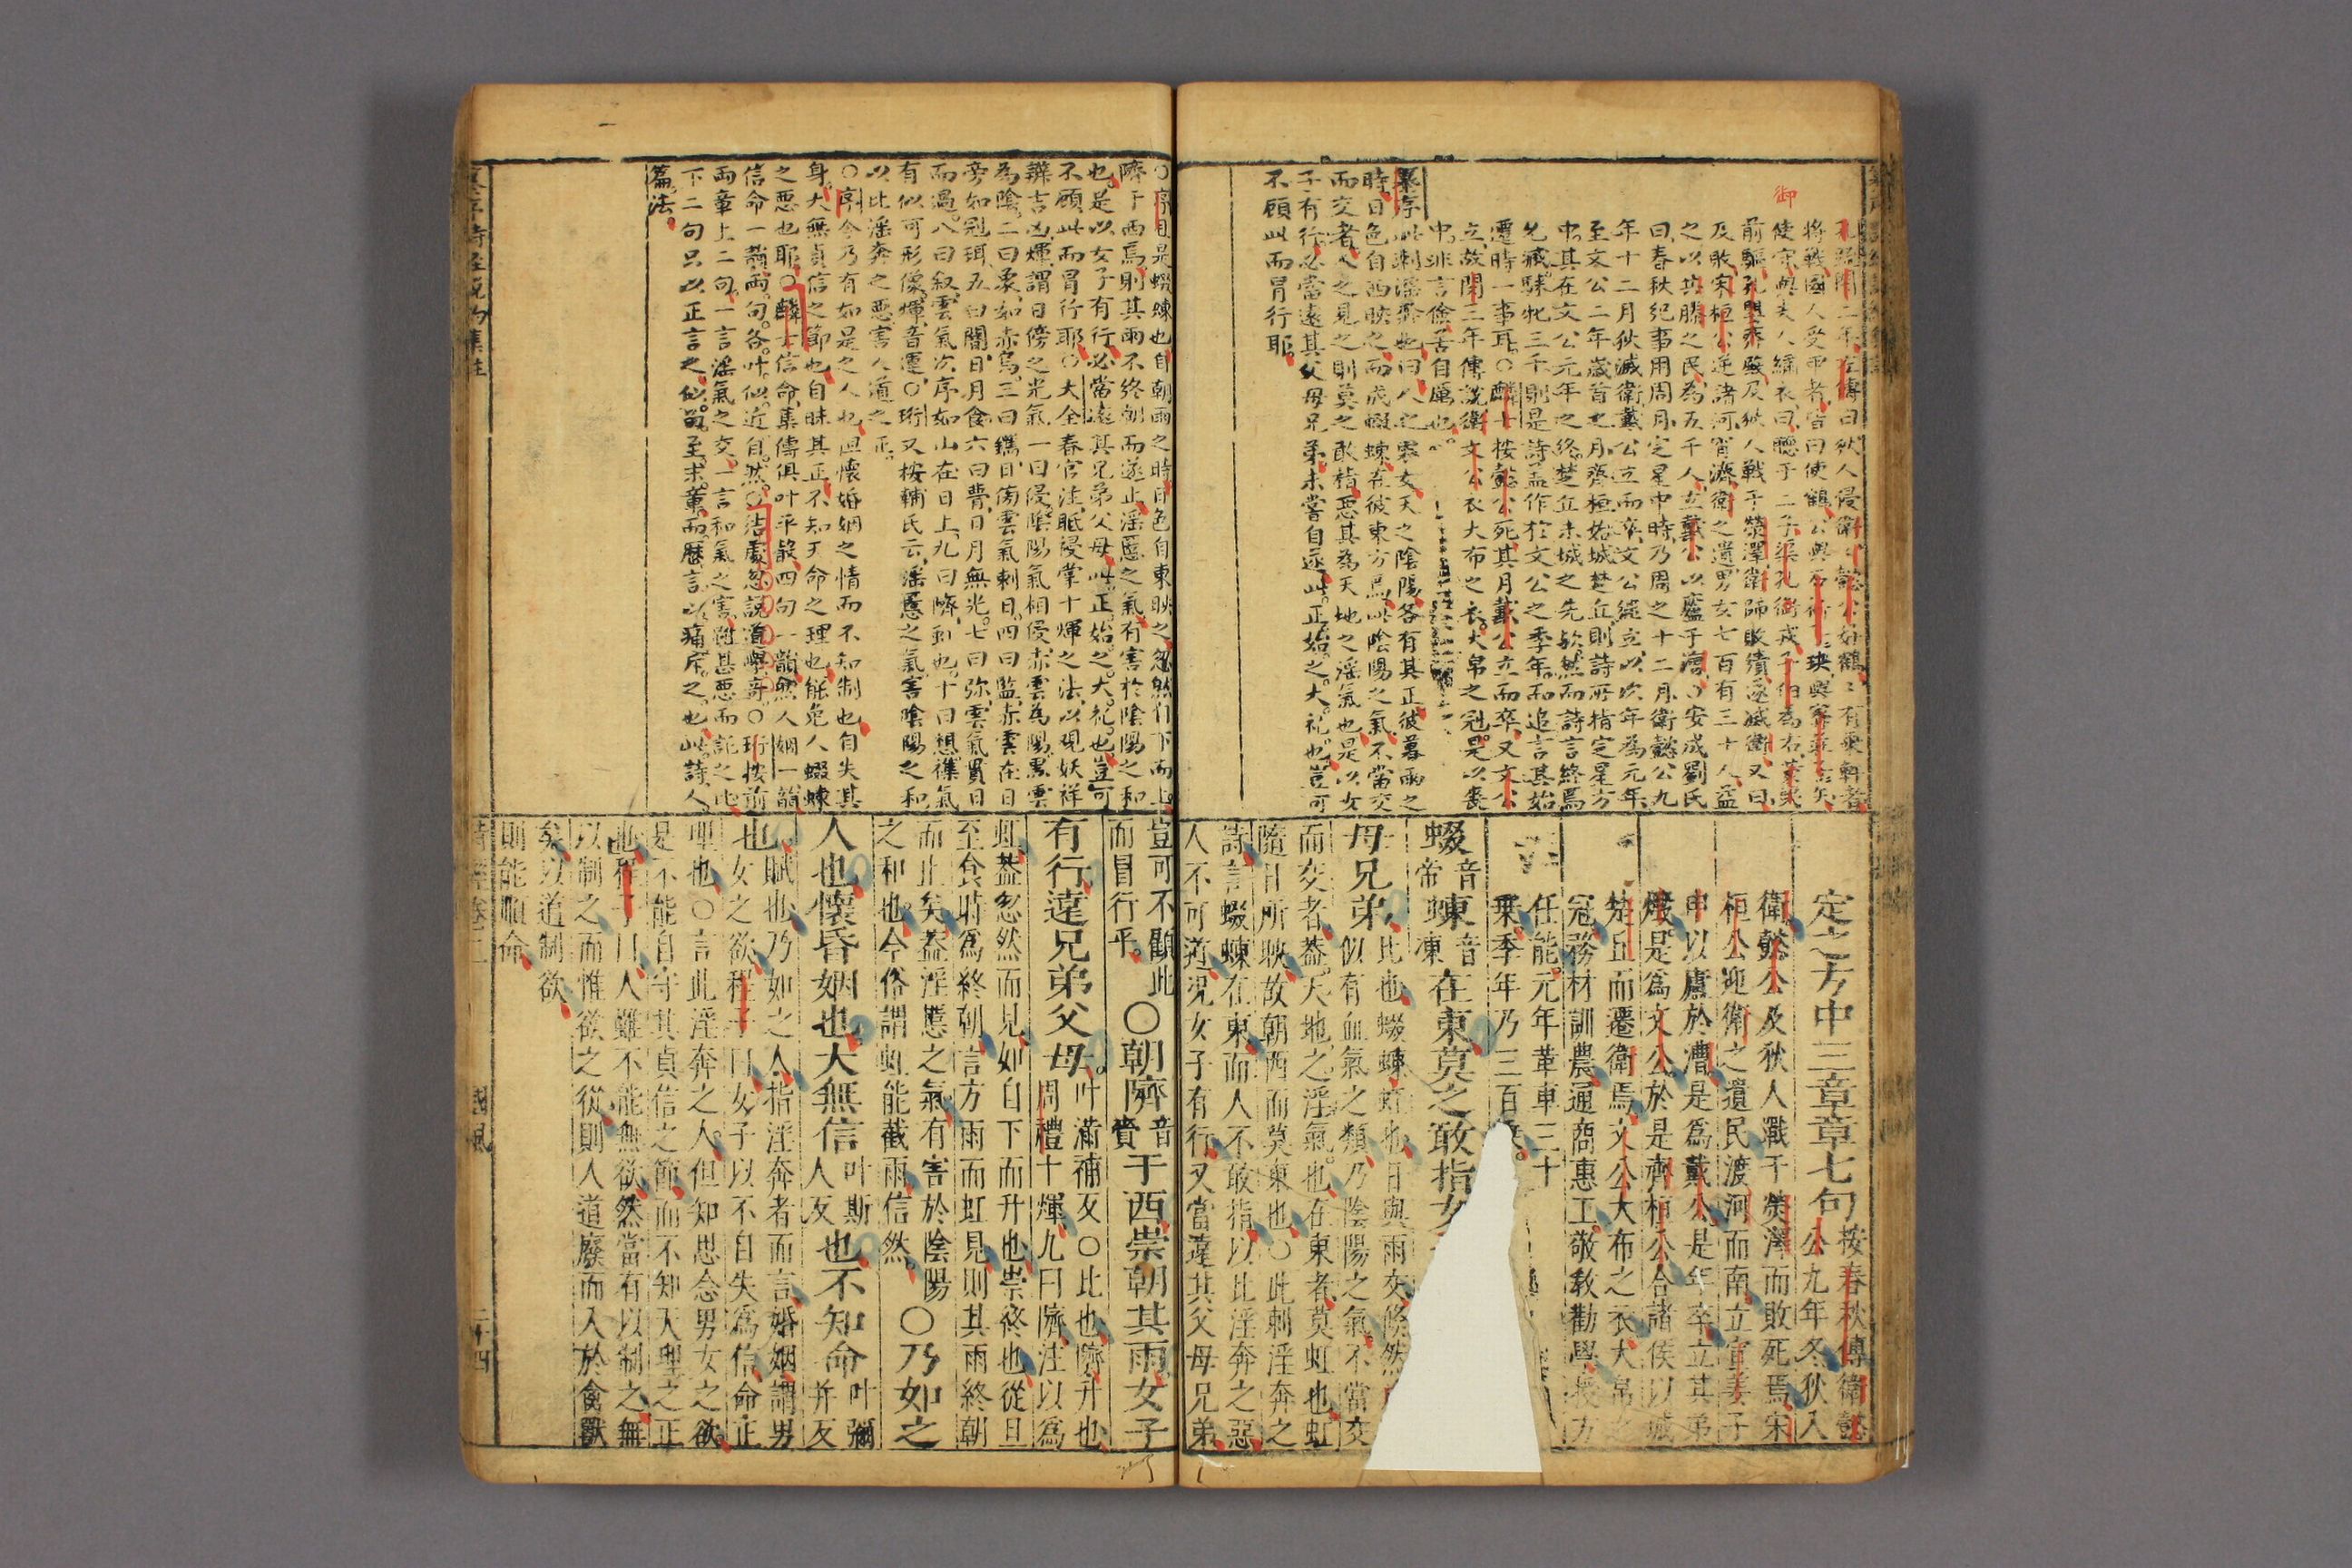 閔二年左傳曰狄人侵衛懿公好鶴有乘軒者
將戰國人受甲者皆曰使鶴公與石祁子玦與甯莊子矢
使守與夫人繡衣曰聽于二子渠孔御戎子伯為右黃夷
前驅孔嬰齊殿及狄人戰于熒澤衛師敗績遂滅衛又曰
及敗宋桓公逆諸河宵濟衛之遺男女七百有三十人益
之以共滕之民為五千人立戴公以廬于漕○安成劉氏
曰春秋紀事用周月定星中時乃周之十二月衛懿公九
年十二月狄滅衛戴公立而卒文公繼立以次年為元年
至文公二年歲首之月齊桓始城楚丘則詩所指定星方
中其在文公元年之終楚丘未城之先歟然而詩言終焉
允臧騋牝三千則是詩蓋作於文公之季年而追言其始
遷時一事耳○麟士按懿公死其月戴公立而卒又文公
立故閔二年傳說衛文公衣大布之衣大帛之冠是以喪
中非言儉苦自厲也
時日色自西映之而成蝃蝀在彼東方焉此陰陽之氣不當交
而交者人之見之則莫之敢指惡其為天地之淫氣也是以女
子有行必當遠其父母兄弟未嘗自遂此正始之大礼也豈可
不顧此而冒行耶
定之方中三章章七句 按春秋傳衛懿公九年冬狄入
衛懿公及狄人戰于熒澤而敗死焉宋
桓公迎衛之遺民渡河而南立宣姜子
申以廬於漕是為戴公是年卒立其弟
燬是為文公於是齊桓公合諸侯以城
楚丘而遷衛焉文公大布之衣大帛之
冠務材訓農通商惠工敬教勸學授方
任能元年革車三十
乘季年乃三百乘
蝃音帝蝀音凍在東莫之敢指女
母兄弟 比也蝃蝀虹也日與雨交倐然
似有血氣之類乃陰陽之氣不當交
而交者蓋天地之淫氣也在東者莫虹也虹
隨日所映故朝西而莫東也○此刺淫奔之
詩言蝃蝀在東而人不敢指以比淫奔之惡
人不可道況女子有行又當遠其父母兄弟
○序曰是蝃蝀也自朝雨之時日色自東映之忽然自下而上
隮于西焉則其雨不終朝而遂止淫慝之氣有害於陰陽之和
也是以女子有行必當遠其兄弟父母此正始之大礼也豈可
不顧此而冒行耶○大全春官注眡祲掌十煇之法以觀妖祥
辨吉凶煇謂日傍之光氣一曰祲陰陽氣相侵赤雲為陽黑雲
為陰二曰象如赤烏三曰鑴日傍雲氣刺日四曰監赤雲在日
旁如冠珥五曰闇日月食六曰瞢日月無光七曰弥雲氣貫日
而過八曰敘雲氣次序如山在日上九曰隮虹也十曰想襍氣
有似可形像煇音運○珩又按輔氏云淫慝之氣害陰陽之和
以比淫奔之惡害人道之正
○序今乃有如是之人也但懷婚姻之情而不知制也自失其
身大無貞信之節也自昧其正不知天命之理也能免人蝃蝀
之惡也耶○麟士信命集傳俱叶平散四句一韻然人姻一韻
信命一韻兩句各叶似近自然○結處忽說道學奇○珩按前
兩章上二句一言淫氣之交一言和氣之害甚惡而託之也
下二句只以正言之似罵至末章而歷言以痛斥之也此詩人
篇法
豈可不顧此
而冒行乎 ○朝隮音賫于西崇朝其雨女子
有行遠兄弟父母 叶滿補反○比也隮升也
周禮十煇九曰隮注以為
虹蓋忽然而見如自下而升也崇終也從旦
至食時為終朝言方雨而虹見則其雨終朝
而止矣蓋淫慝之氣有害於陰陽
之和也今俗謂虹能截雨信然 ○乃如之
人也懷昏姻也大無信叶斯人反也不知命叶彌并反
也 賦也乃如之人指淫奔者而言婚姻謂男
女之欲程子曰女子以不自失為信命正
理也○言此淫奔之人但知思念男女之欲
是不能自守其貞信之節而不知天理之正
也程子曰人雖不能無欲然當有以制之無
以制之而惟欲之從則人道廢而入於禽獸
矣以道制欲
則能順命
國風
二十四
御